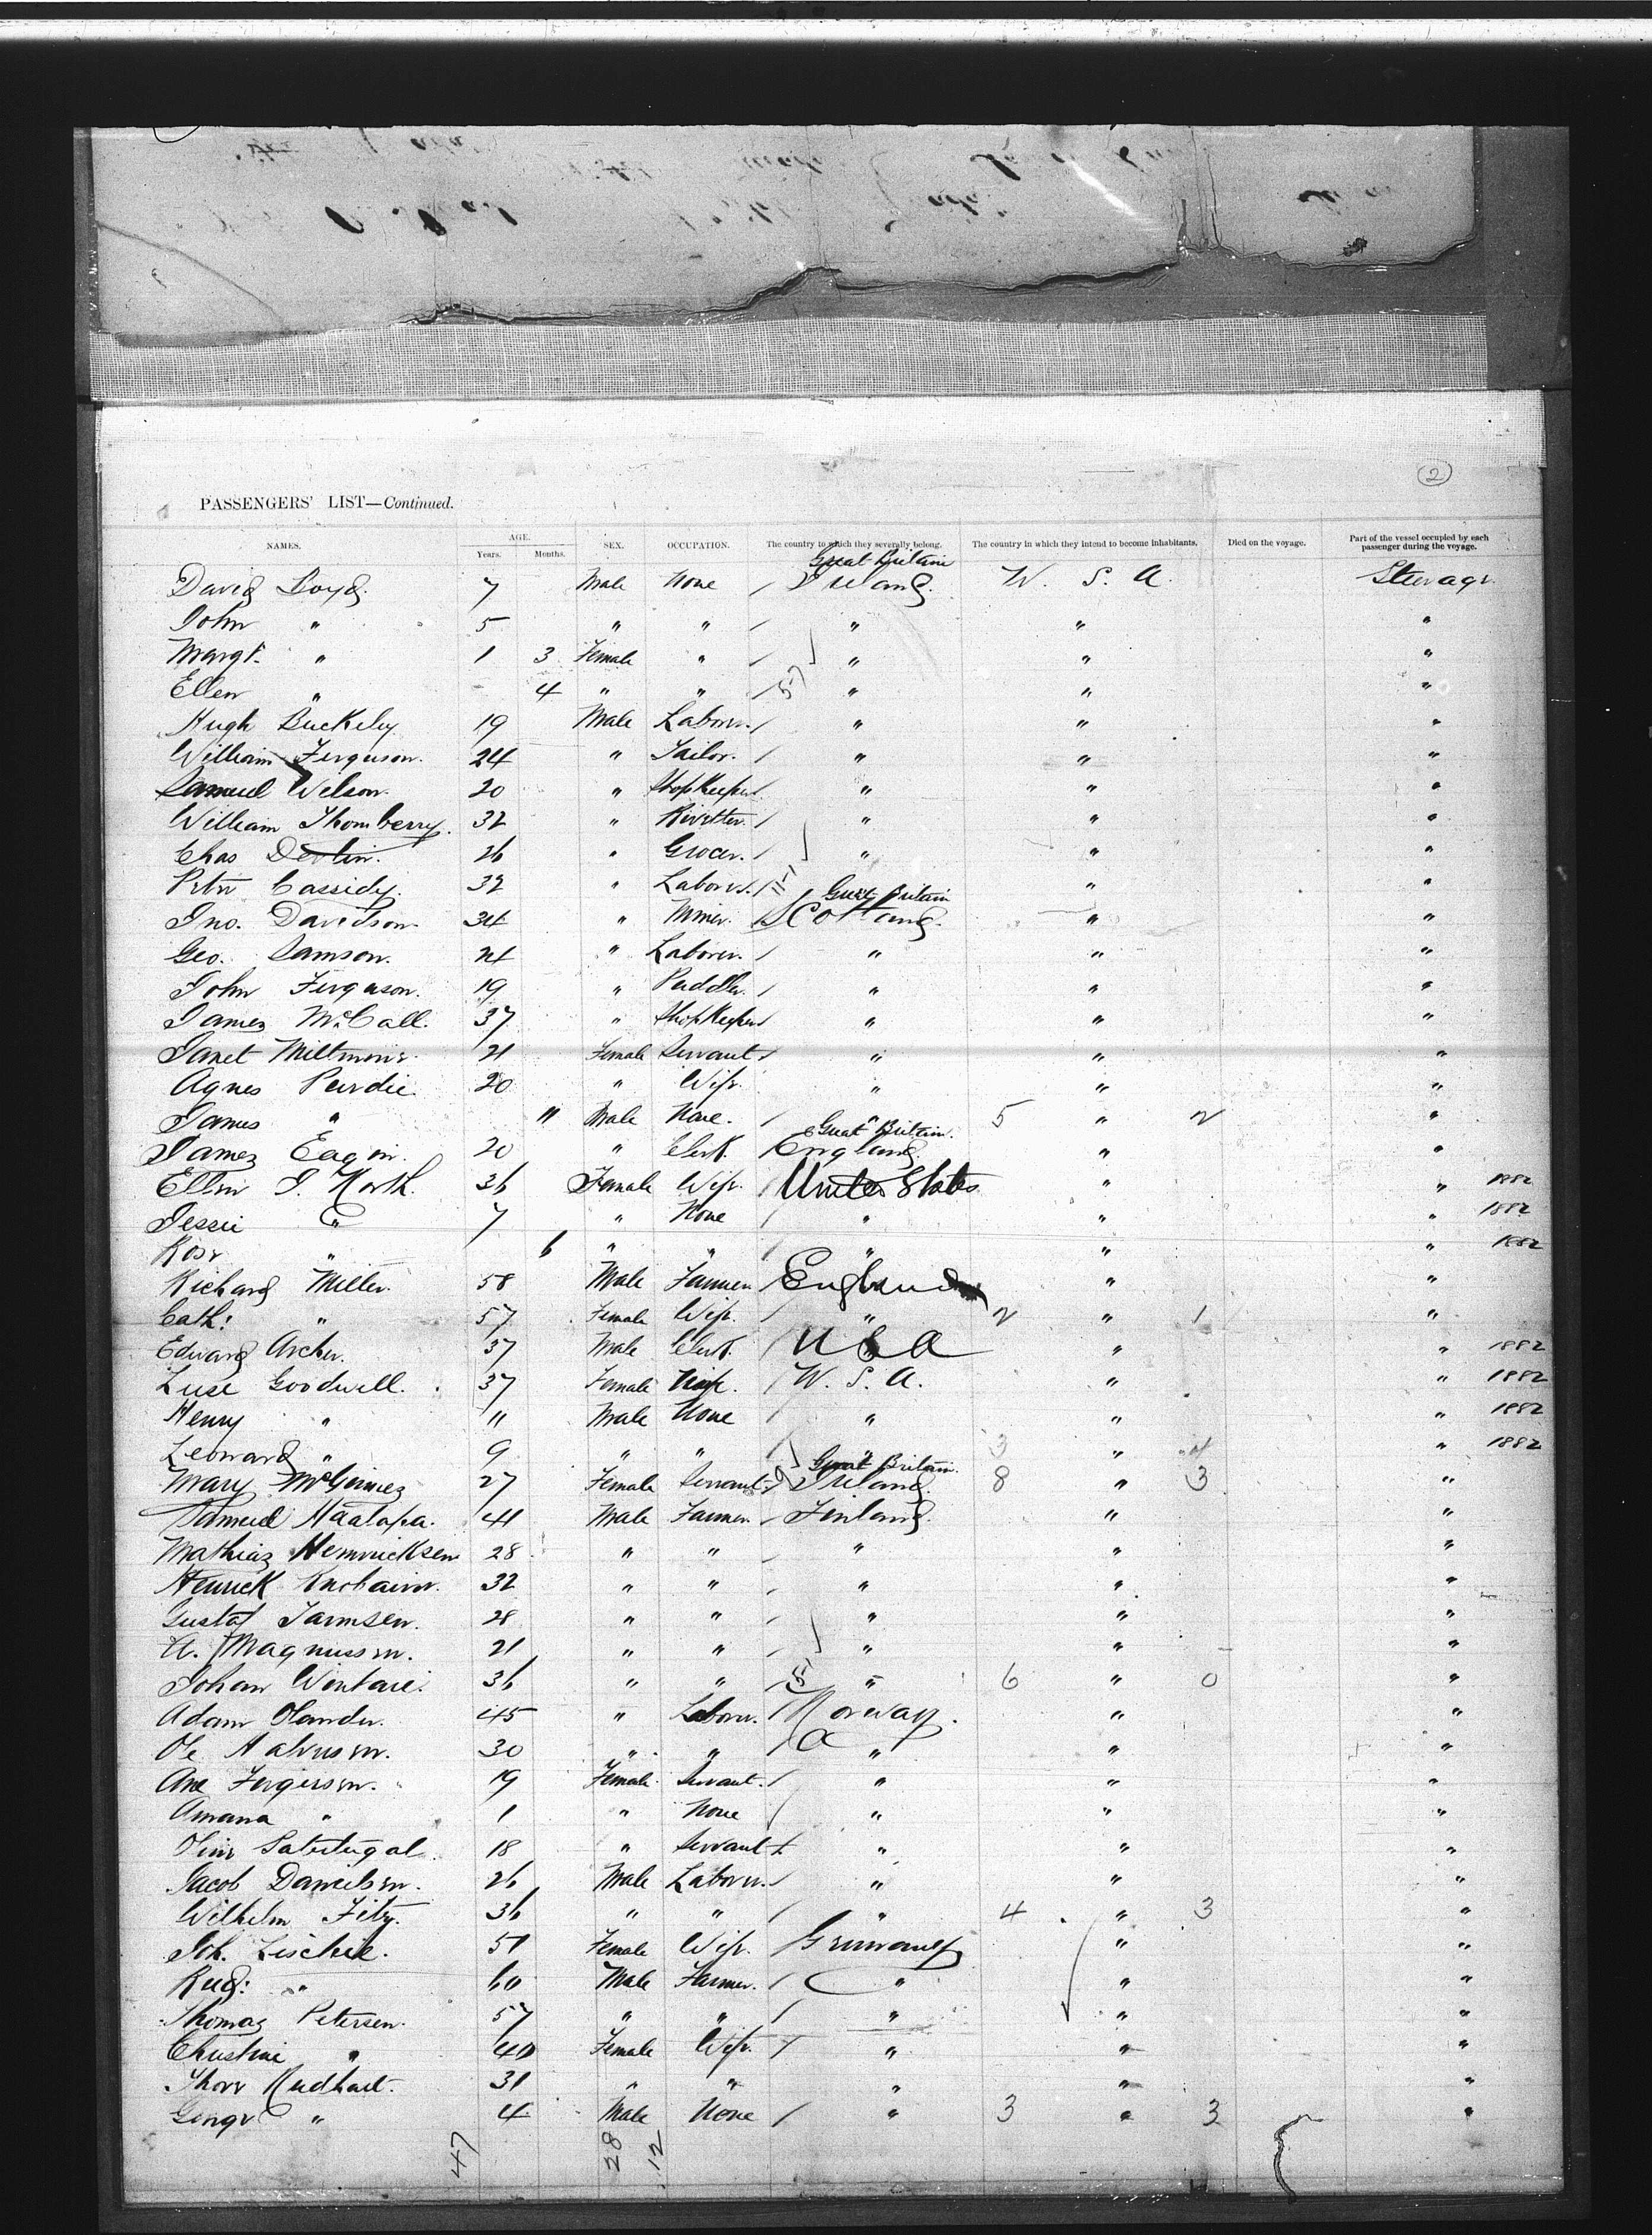 2
PASSENGERS' LIST—Continued.
NAMES. AGE. Years. Months. SEX. OCCUPATION. The country to which they severally belong. The country in which they intend to become inhabitants. Died on the voyage. Part of the vessel occupied by each passenger during the voyage.
Great Britain
David Boyd. 7 Male None / Ireland. U. S. A. Steerage
John " 5 " " / " " "
Margt. " 1 3 Female " / " " "
Ellen " 4 " " / " " "
Hugh Buckely 19 Male Laborer / " " "
William Ferguson. 24 " Tailor. / " " "
Samuel Wilson 20 " Shopkeeper " " "
William Thornberry. 32 " Rivetter. / " " "
Chas Devlin. 26 " Grocer. / " " "
Peter Cassidy. 32 " Laborer. / " "
Great Britain
Jno. Davidson. 34 " Miner. Scotland. " "
Geo. Samson. 24 " Laborer. / " " "
John Ferguson. 19 " Puddler. / " " "
James McCall. 37 " Shopkeeper " " "
Janet 21 Female Servant / " " "
Agnes Purdie. 20 " Wife. " " "
James " 11 Male None. / " 5 " 2 "
Great Britain.
James Eagin. 20 " Clerk. / England " "
Ellen J. North. 36 Female Wife. / United States " " 1882
Jessie " 7 " None / " " " 1882
Rose " 6 " " / " " " 1882
Richard Miller. 58 Male Farmer / England " "
Cath: " 57 Female Wife. / " 2 " 1 "
Edward Archer. 37 Male Clerk. / U S A " " 1882
Luse Goodwill. 37 Female Wife. / U. S. A. " " 1882
Henry " 11 Male None / " " " 1882
Leonard " 9 " " / " 3 " 4 " 1882
Great Britain.
Mary 27 Female Servant Ireland. 8 " 3 "
Samuel Haalapa. 41 Male Farmer. / Finland. " "
Mathias Hemricksen 28 " " / " " "
Henrick 32 " " / " " "
Gustaf Jarmsen. 28 " " / " " "
A. Magnussen. 21 " " / " " "
Johan 36 " " / " 6 " 0 "
Adam Olander. 45 " Laborer. / Norway. " "
Ole Halvusen. 30 " " / " " "
Ane Fergersen. 19 Female. Servant. / " " "
Amana " 1 " None / " " "
18 " Servant " " "
Jacob Danielsen. 26 Male Laborer. / " " "
Wilhelm Fitz. 36 " " / " 4 " 3 "
Joh. Lischke. 51 Female Wife. / Germany " "
Rud: " 60 Male Farmer. / " " "
Thomas Petersen. 57 " " / " " "
Christine " 40 Female Wife. / " " "
Thore Rudhart. 31 " " " " "
" 4 Male None / " 3 " 3 "
47 28 12